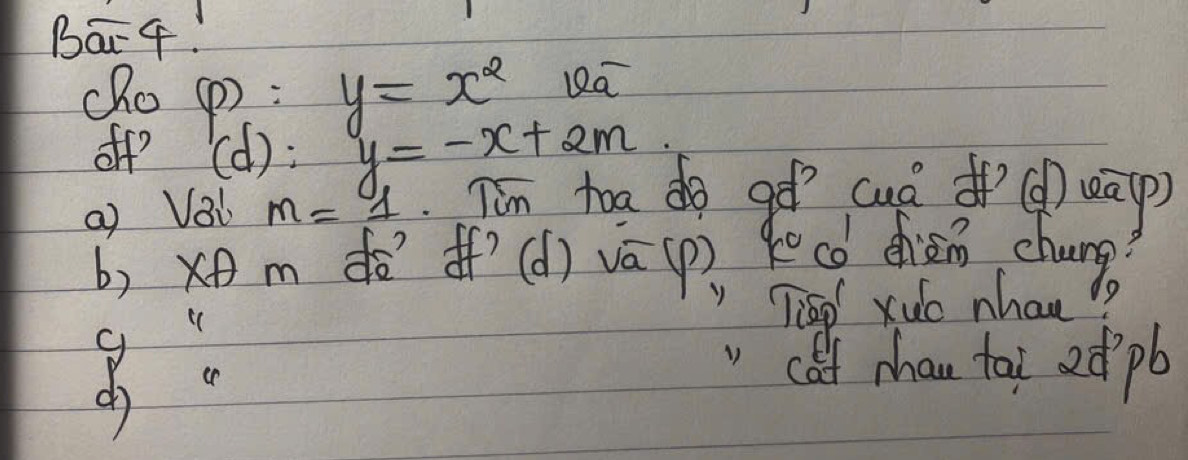 Bài 4:
Cho (P): y = x² và
đt' (d): y = -x + 2m.
a) Với m = 1. Tìm toạ độ gđ' của đt' (d) và (P)
b) XĐ m để đt' (d) và (P) kº có điểm chung?
c) " " Tiếp xúc nhau?
d) " " cắt nhau tại 2đ' pb